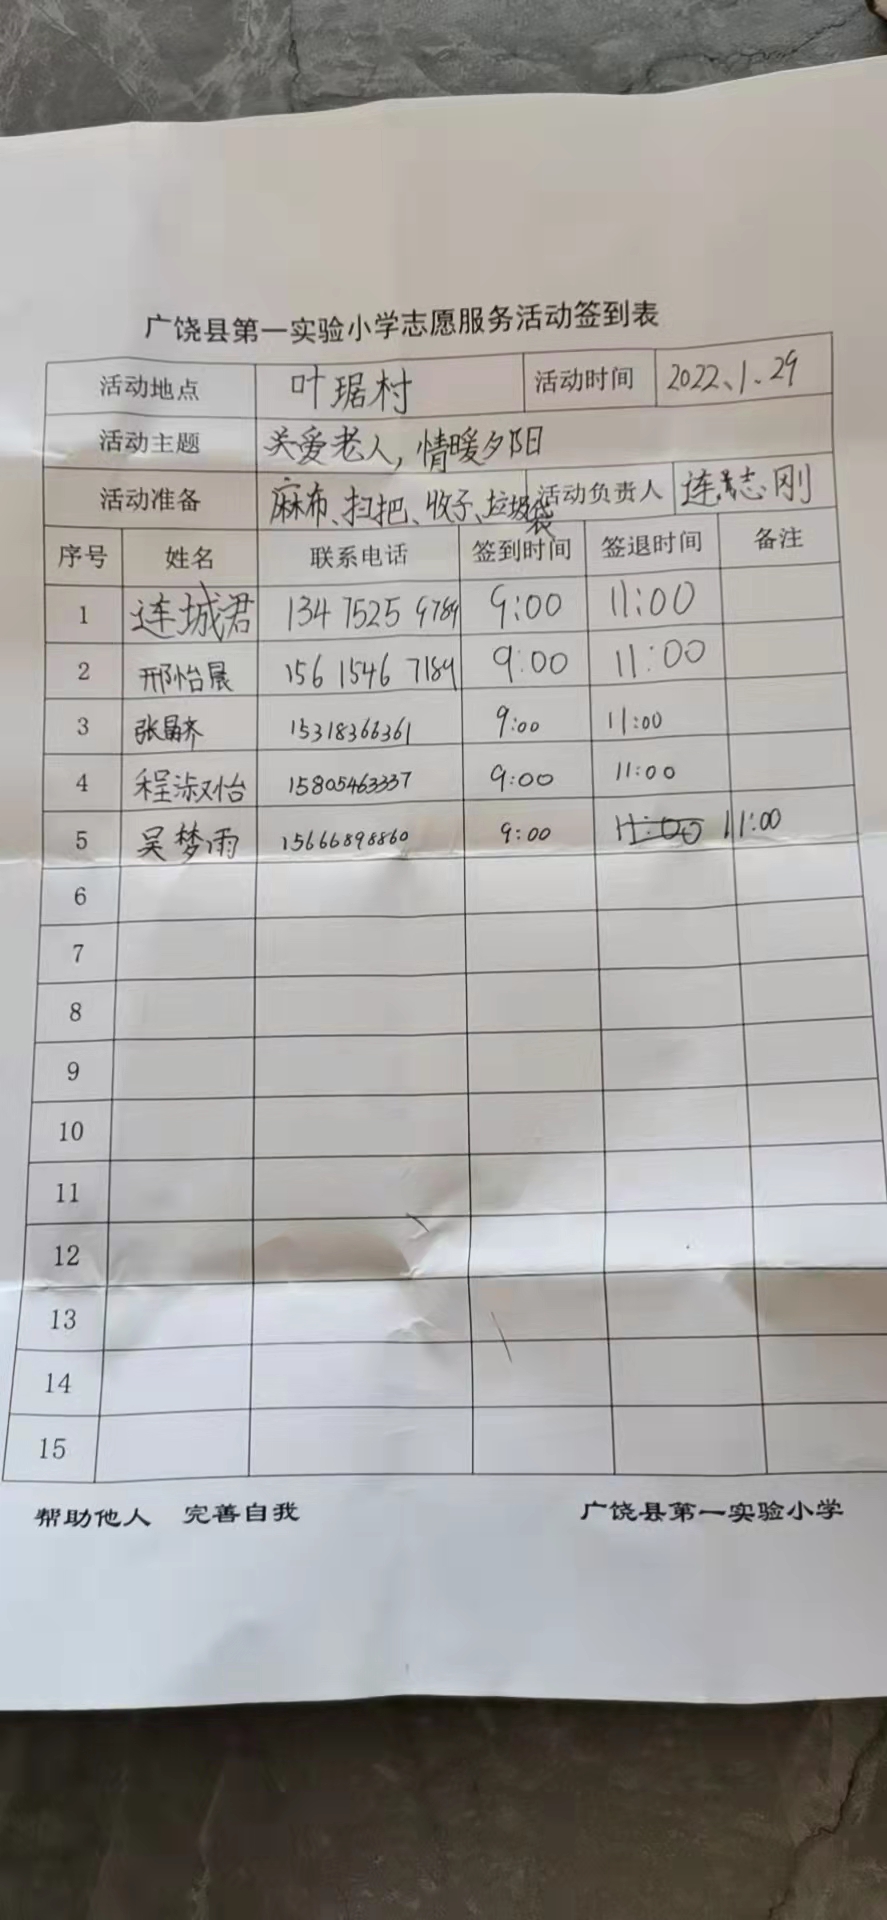 广饶县第一实验小学志愿服务活动签到表
活动地点 叶琚村 活动时间 2022、1、29
活动主题 关爱老人，情暖夕阳
活动准备 麻布、扫把、收子、垃圾袋 活动负责人 连志刚
序号 姓名 联系电话 签到时间 签退时间 备注
1 连城君 134 7525 9789 9:00 11:00
2 邢怡晨 156 1546 7189 9:00 11:00
3 张 15318366361 9:00 11:00
4 程淑怡 15805463337 9:00 11:00
5 吴梦雨 15666898860 9:00 11:00 11:00
6
7
8
9
10
11
12
13
14
15
帮助他人 完善自我 广饶县第一实验小学